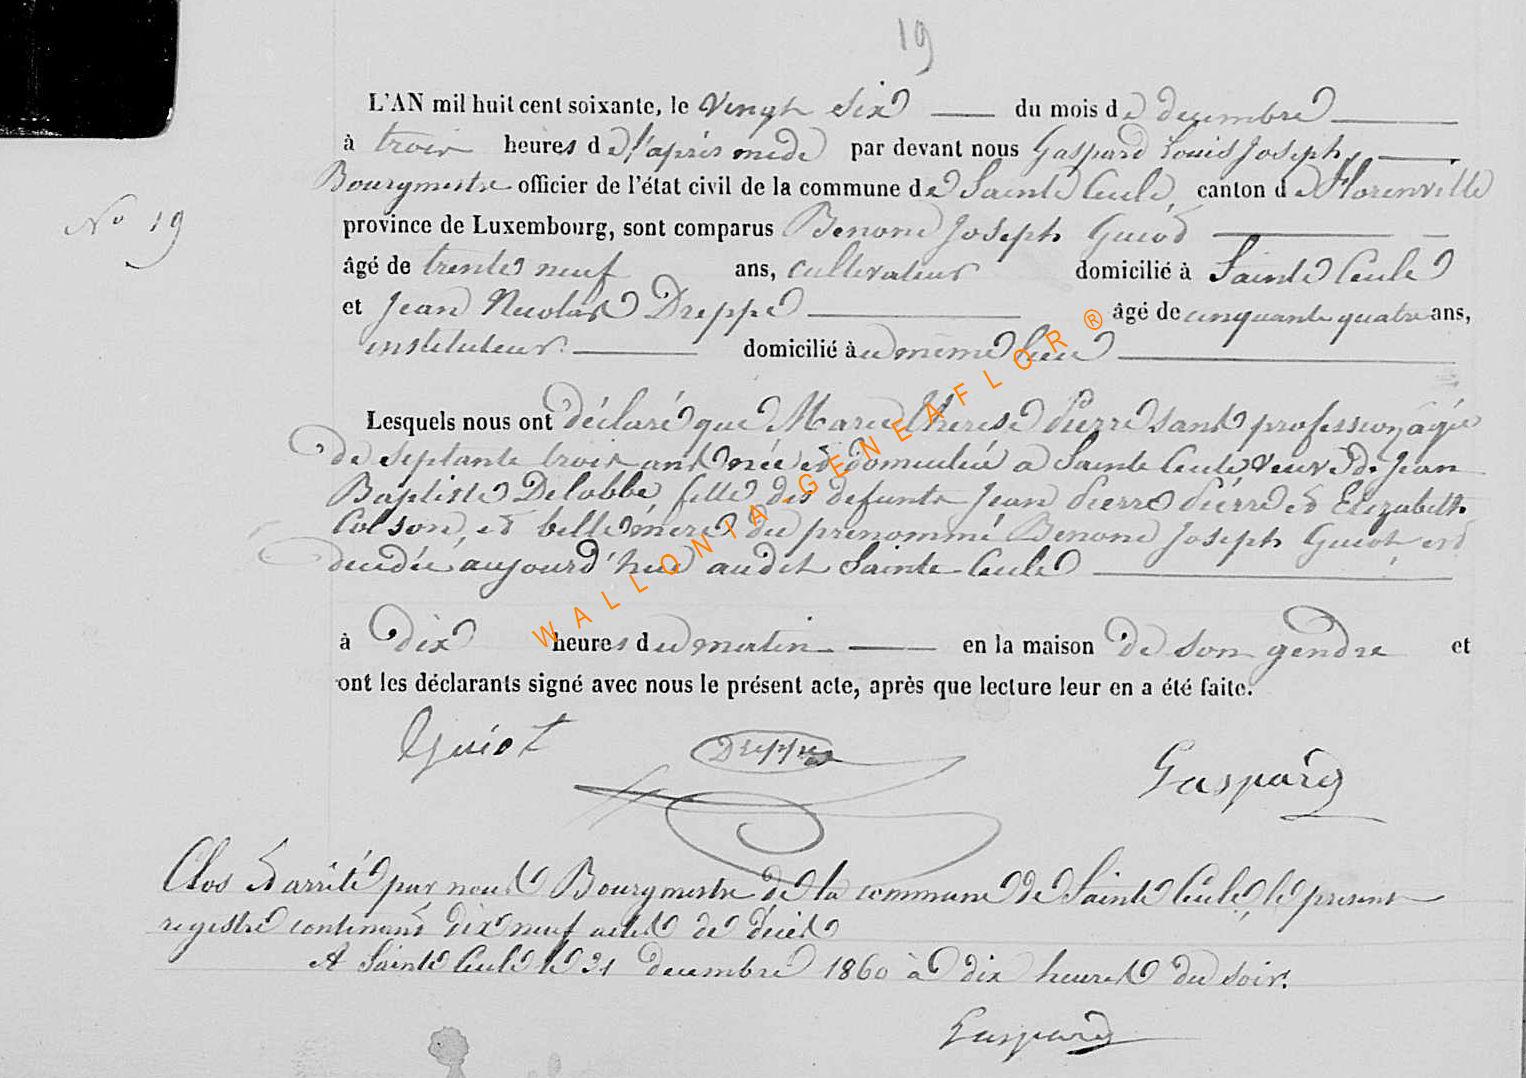 19
L'AN mil huit cent soixante, le vingt six du mois de decembre
à trois heures de l'après mide par devant nous Gaspard Louis Joseph,
Bourgmestre officier de l'état civil de la commune de Sainte Cecile, canton de Florenville
N° 19
province de Luxembourg, sont comparus Benoni Joseph Guiot
âgé de trente neuf ans, cultivateur domicilié à Sainte Cecile
et Jean Nicolas Dreppe âgé de cinquante quatre ans,
instituteur domicilié au même lieu
Lesquels nous ont déclaré que Marie Therese Pierre sans profession, agée
de septante trois ans née et domiciliée a Sainte Cecile veuve de Jean
Baptiste Delobbe, fille des defunts Jean Pierre Pierre et Elizabeth
Colson, et belle mère du prenommé Benoni Joseph Guiot, est
decedée aujourd'hui audit Sainte Cecile
à dix heures du matin en la maison de son gendre et
ont les déclarants signé avec nous le présent acte, après que lecture leur en a été faite.
Guiot Dreppe Gaspard
Clos et arrêté par nous Bourgmestre de la commune de Sainte Cecile, le present
registre contenant dix neuf actes de décès
A Sainte Cecile le 31 decembre 1860 à dix heures du soir.
Gaspard
WALLONIA-GENEAFLOR®